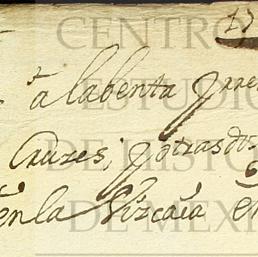 CENTRO
ESTUDIO
DE HISTO
DE MEXIC
17
a labenta Yrre
Cruzes; y otras dos
en la Vizcaia